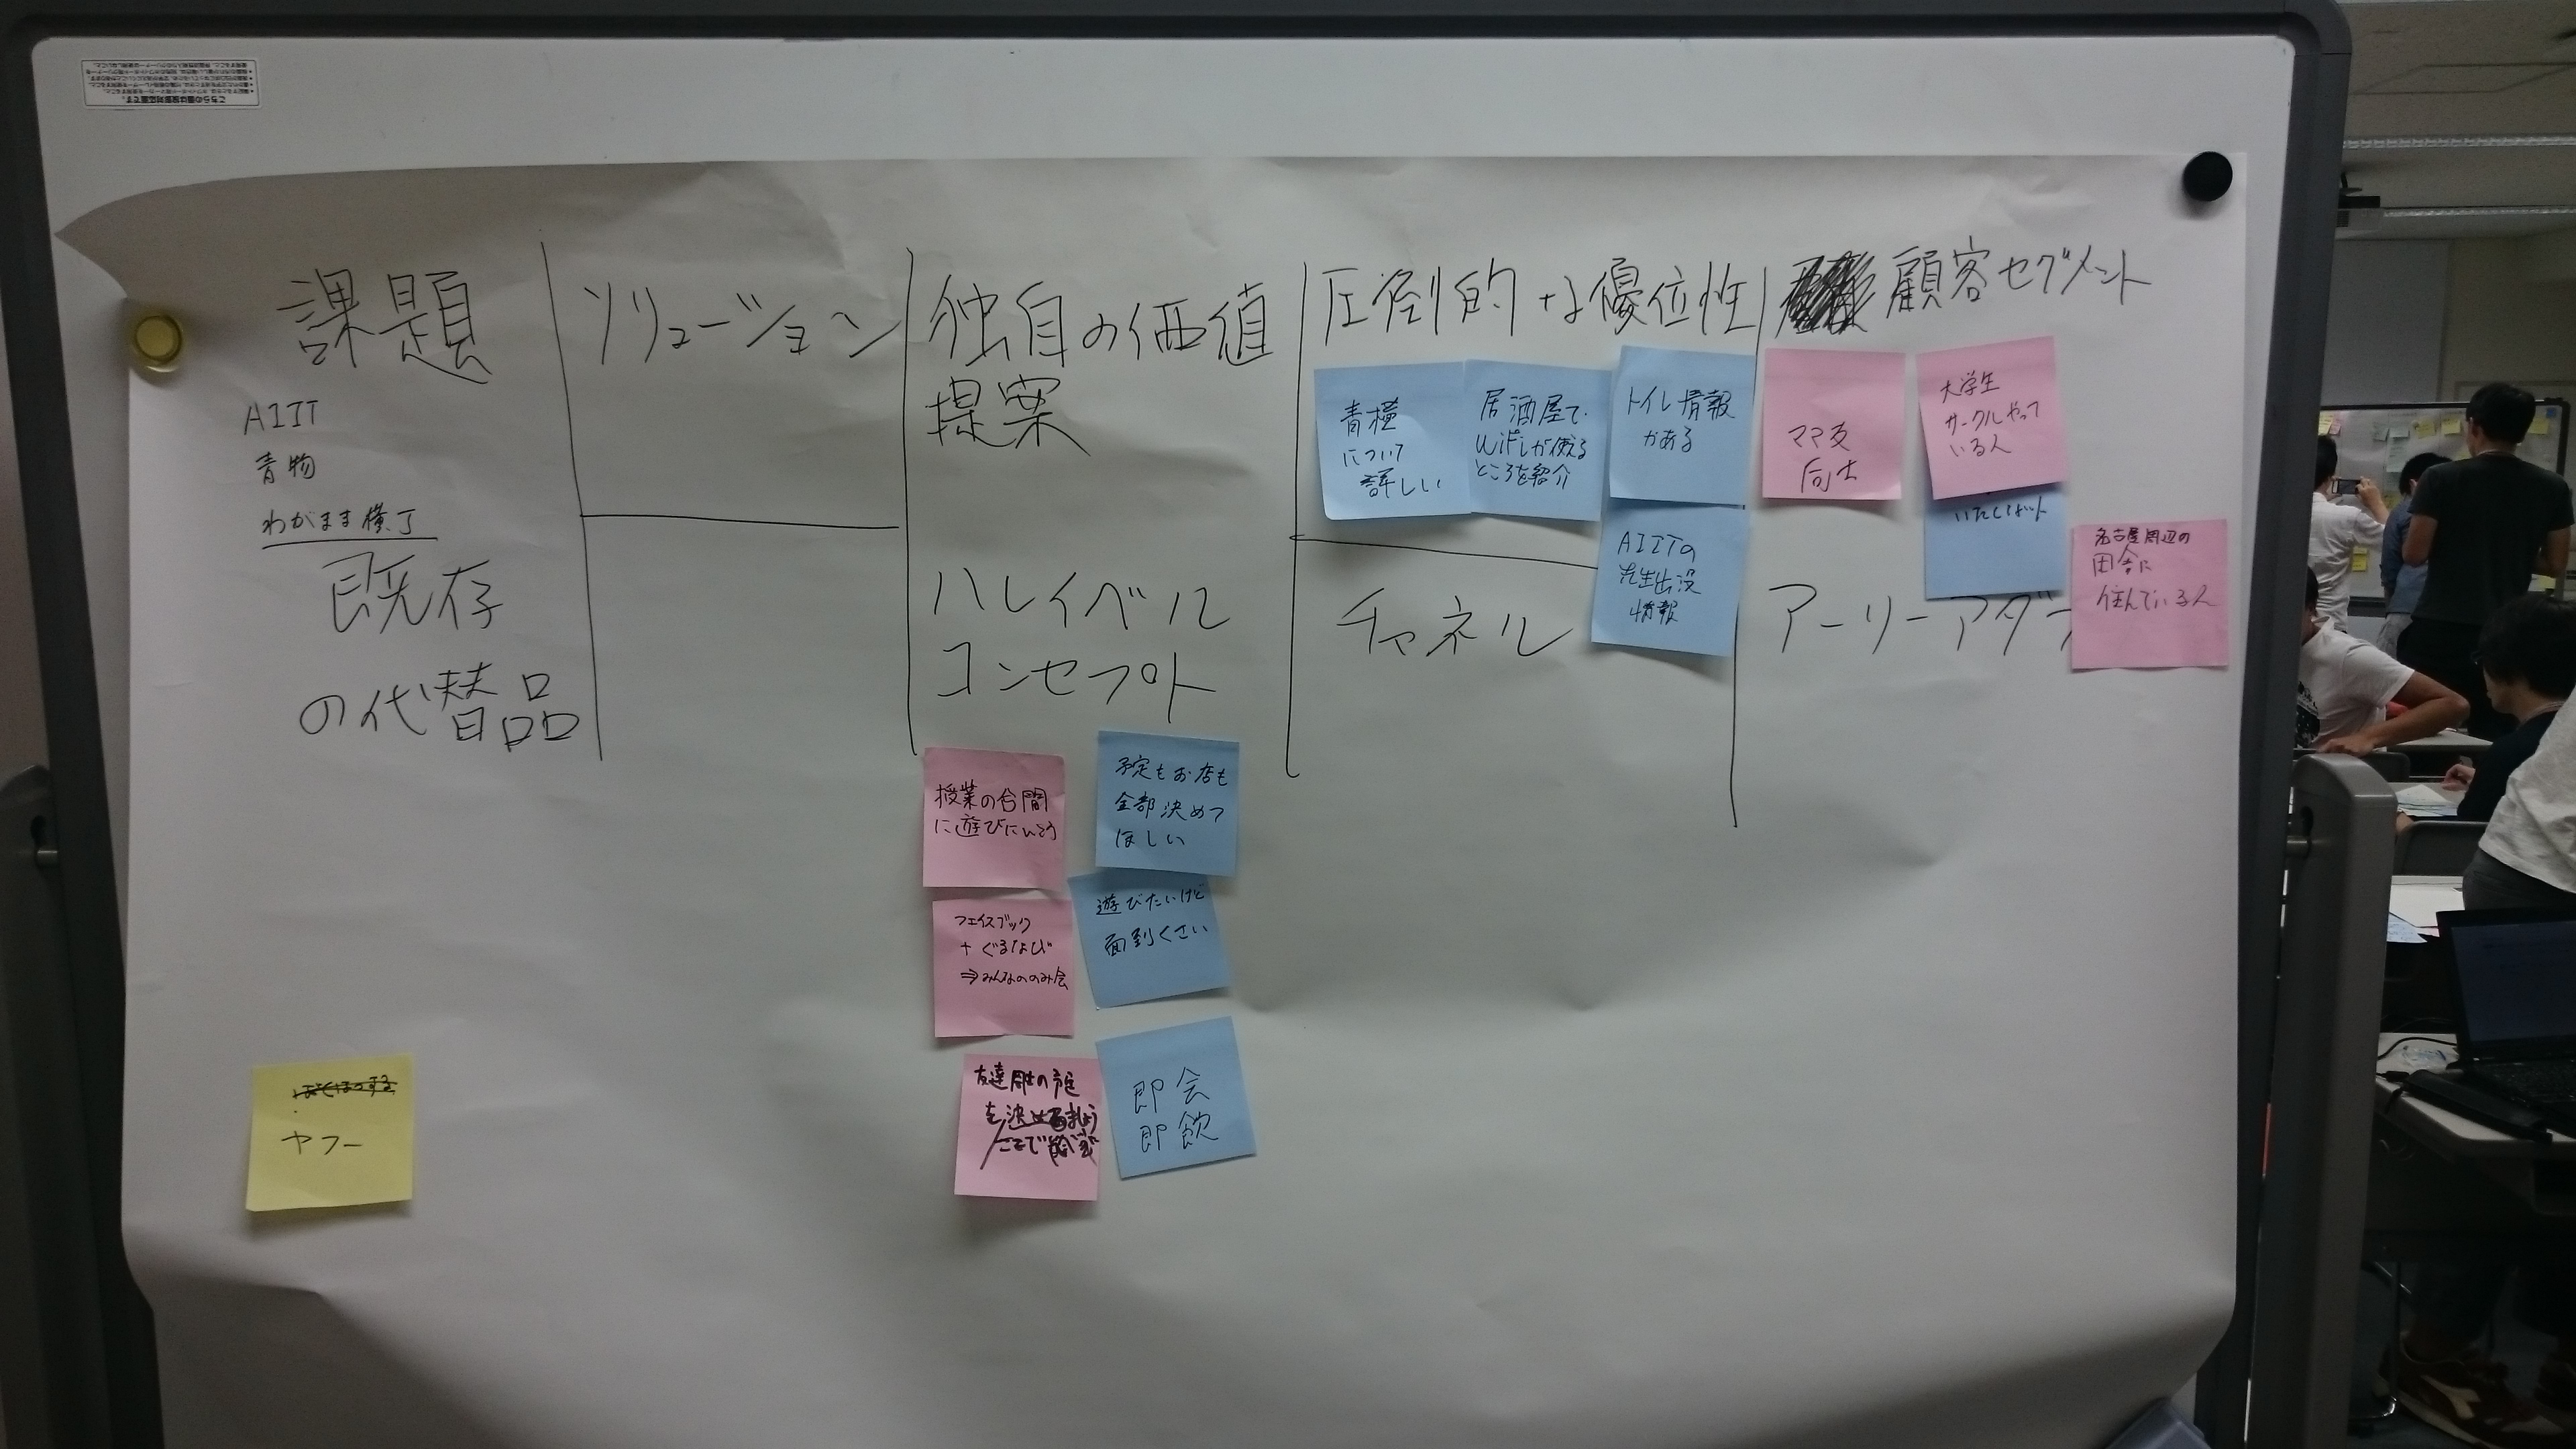 課題
AIIT
青物
わがまま横丁
既存
の代替品
ヤフー
ソリューション
独自の価値
提案
ハレイベル
コンセプト
授業の合間
に遊びにいこう
予定もお店も
全部決めて
ほしい
フェイスブック
+ ぐるなび
⇒みんなののみ会
遊びたいけど
面倒くさい
友達同士の予定
を決
ここで
即会
即飲
圧倒的な優位性
青横
について
詳しい
居酒屋で
WiFiが使える
ところを紹介
トイレ情報
がある
AIITの
先生出没
情報
チャネル
顧客セグメント
ママ友
同士
大学生
サークルやって
いる人
名古屋周辺の
田舎に
住んでいる人
アーリーアダ